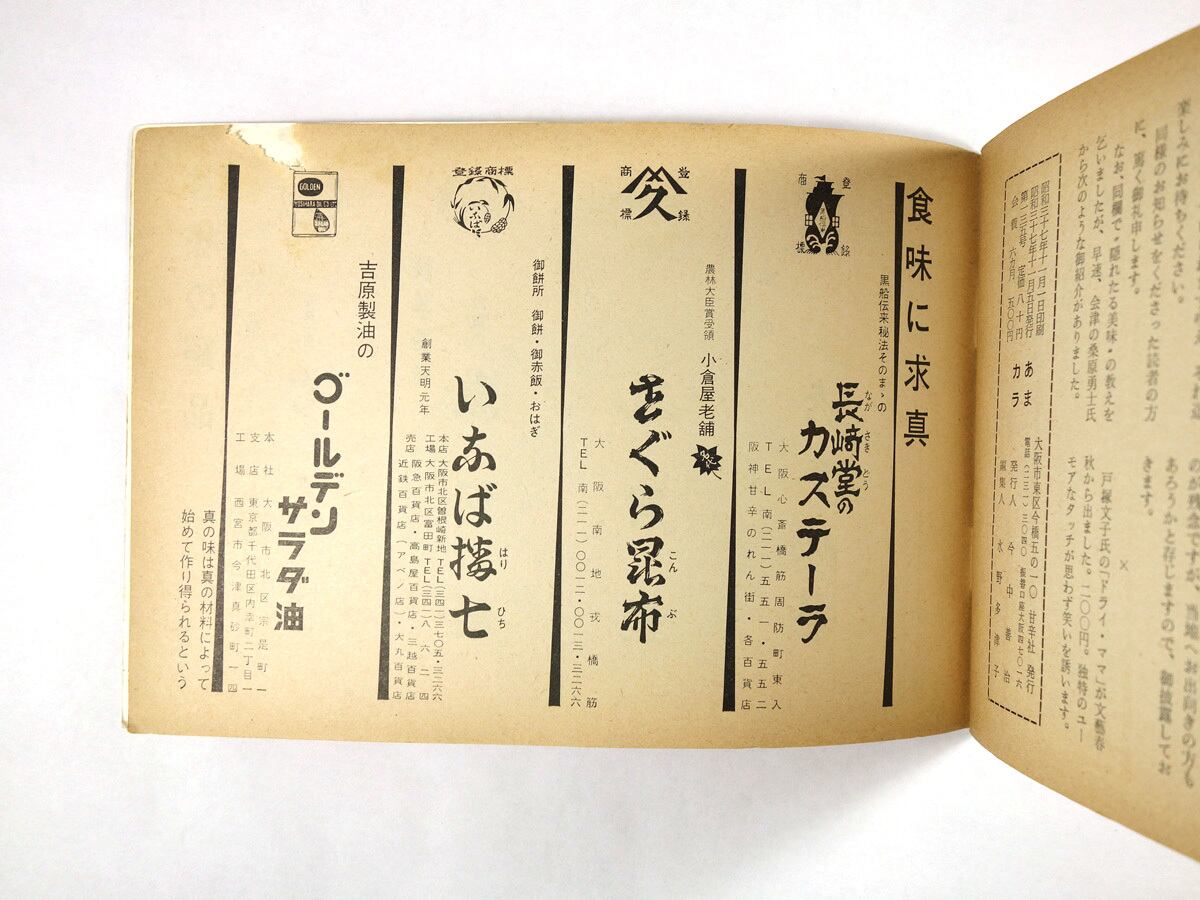 楽しみにお待ちください。
同様のお知らせをくださった読者の方
に、篤く御礼申します。
なお、同欄で“隠れたる美味”の教えを
乞いましたが、早速、会津の桑原勇士氏
から次のような御紹介がありました。
のが残念ですが、当地へお出向きの方も
あろうかと存じますので、御披露してお
きます。
×
戸塚文子氏の「ドライ・ママ」が文藝春
秋から出ました。二〇〇円。独特のユー
モアなタッチが思わず笑いを誘います。
昭和三十七年十一月一日印刷
昭和三十七年十一月五日発行
第一三五号 定価八十円
会費 六カ月 五〇〇円
あまカラ
大阪市東区今橋五の一〇 甘辛社 発行
電話(二三一)三〇四〇 振替口座大阪四七〇一六
発行人 今中善治
編集人 水野多津子
食味に求真
登録商標
黒船伝来秘法そのまゝの
長崎堂の
ながさきどう
カステーラ
大阪心斎橋筋周防町東入
TEL南(二一一)五五一・五五二
阪神甘辛のれん街・各百貨店
登録商標
農林大臣賞受領 小倉屋老舗
をぐら昆布
こんぶ
大阪南地戎橋筋
TEL 南(二一一)〇〇一二・〇〇一三・三二六六
登録商標
いなば
御餅所 御餅・御赤飯・おはぎ
いなば播七
はりひち
創業天明元年
本店 大阪市北区曽根崎新地 TEL(三四一)三七〇五・三二六六
工場 大阪市北区富田町 TEL(三四一)八六二四
売店 阪急百貨店・高島屋百貨店・三越百貨店
近鉄百貨店(アベノ店)・大丸百貨店
GOLDEN
YOSHIHARA OIL CO LTD
吉原製油の
ゴールデン
サラダ油
本社 大阪市北区宗是町一
支店 東京都千代田区内幸町二丁目一
工場 西宮市今津真砂町一四
真の味は真の材料によって
始めて作り得られるという